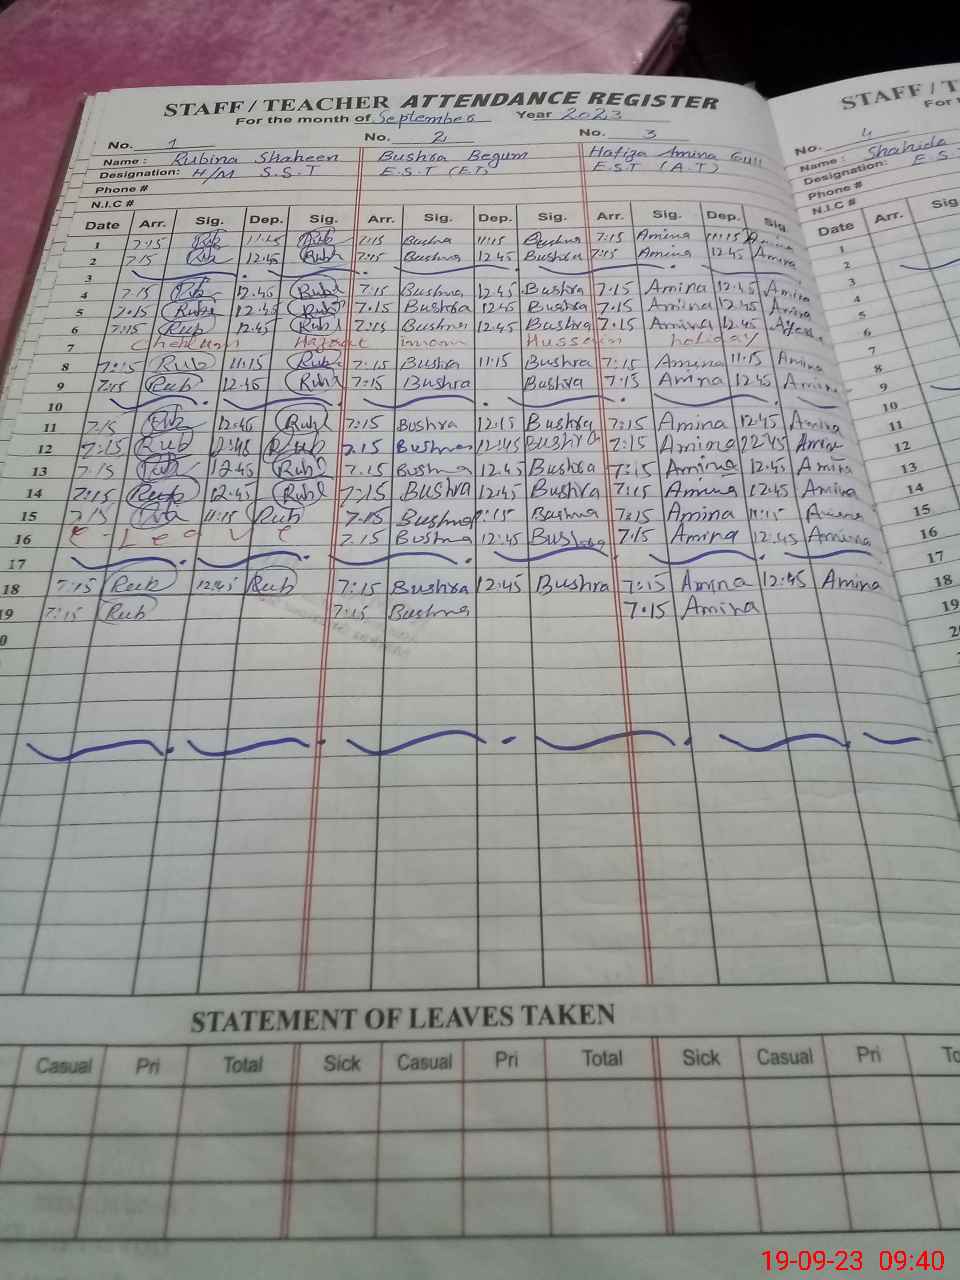 STAFF / TEACHER ATTENDANCE REGISTER
For the month of September Year 2023
No. 1 No. 2 No. 3
Name : Rubina Shaheen Bushra Begum Hafiza Amina Gull
Designation: H/M S.S.T E.S.T (E.T) E.S.T (A.T)
Phone #
N.I.C #
Date Arr. Sig. Dep. Sig. Arr. Sig. Dep. Sig. Arr. Sig. Dep. Sig.
1 7:15 Rub 11:15 Rub 7:15 Bushra 11:15 Bushra 7:15 Amina 11:15 Amina
2 7:15 Rub 12:45 Rub 7:15 Bushra 12:45 Bushra 7:15 Amina 12:45 Amina
3
4 7.15 Rub 12.45 Rub 7.15 Bushra 12:45 Bushra 7.15 Amina 12:45 Amina
5 7.15 Rub 12:45 Rub 7.15 Bushra 12:45 Bushra 7.15 Amina 12:45 Amina
6 7:15 Rub 12:45 Rub 7:15 Bushra 12:45 Bushra 7.15 Amina 12.45
7 Chehlum Hazrat imam Hussain holiday
8 7:15 Rub 11:15 Rub 7:15 Bushra 11:15 Bushra 7:15 Amina 11:15 Amina
9 7:15 Rub 12:45 Rub 7:15 Bushra Bushra 7:15 Amina 12:45 Amina
10
11 7:15 Rub 12:45 Rub 7:15 Bushra 12:45 Bushra 7:15 Amina 12:45 Amina
12 7:15 Rub 12:45 Rub 7.15 Bushra 12:45 Bushra 7:15 Amina 12:45 Amina
13 7.15 Rub 12:45 Rub 7.15 Bushra 12:45 Bushra 7:15 Amina 12:45 Amina
14 7:15 Rub 12:45 Rub 7:15 Bushra 12:45 Bushra 7:15 Amina 12:45 Amina
15 7:15 Rub 11:15 Rub 7.15 Bushra 11:15 Bushra 7:15 Amina 11:15 Amina
16 Leave 7.15 Bushra 12:45 Bushra 7:15 Amina 12:45 Amina
17
18 7:15 Rub 12:45 Rub 7:15 Bushra 12:45 Bushra 7:15 Amina 12:45 Amina
19 7:15 Rub 7:15 Bushra 7.15 Amina
STATEMENT OF LEAVES TAKEN
Casual Pri Total Sick Casual Pri Total Sick Casual Pri To
STAFF / T
For t
No. 4
Name : Shahida
Designation: E.S.T
Phone #
N.I.C #
Date Arr. Sig
1
2
3
4
5
6
7
8
9
10
11
12
13
14
15
16
17
18
19
20
19-09-23 09:40